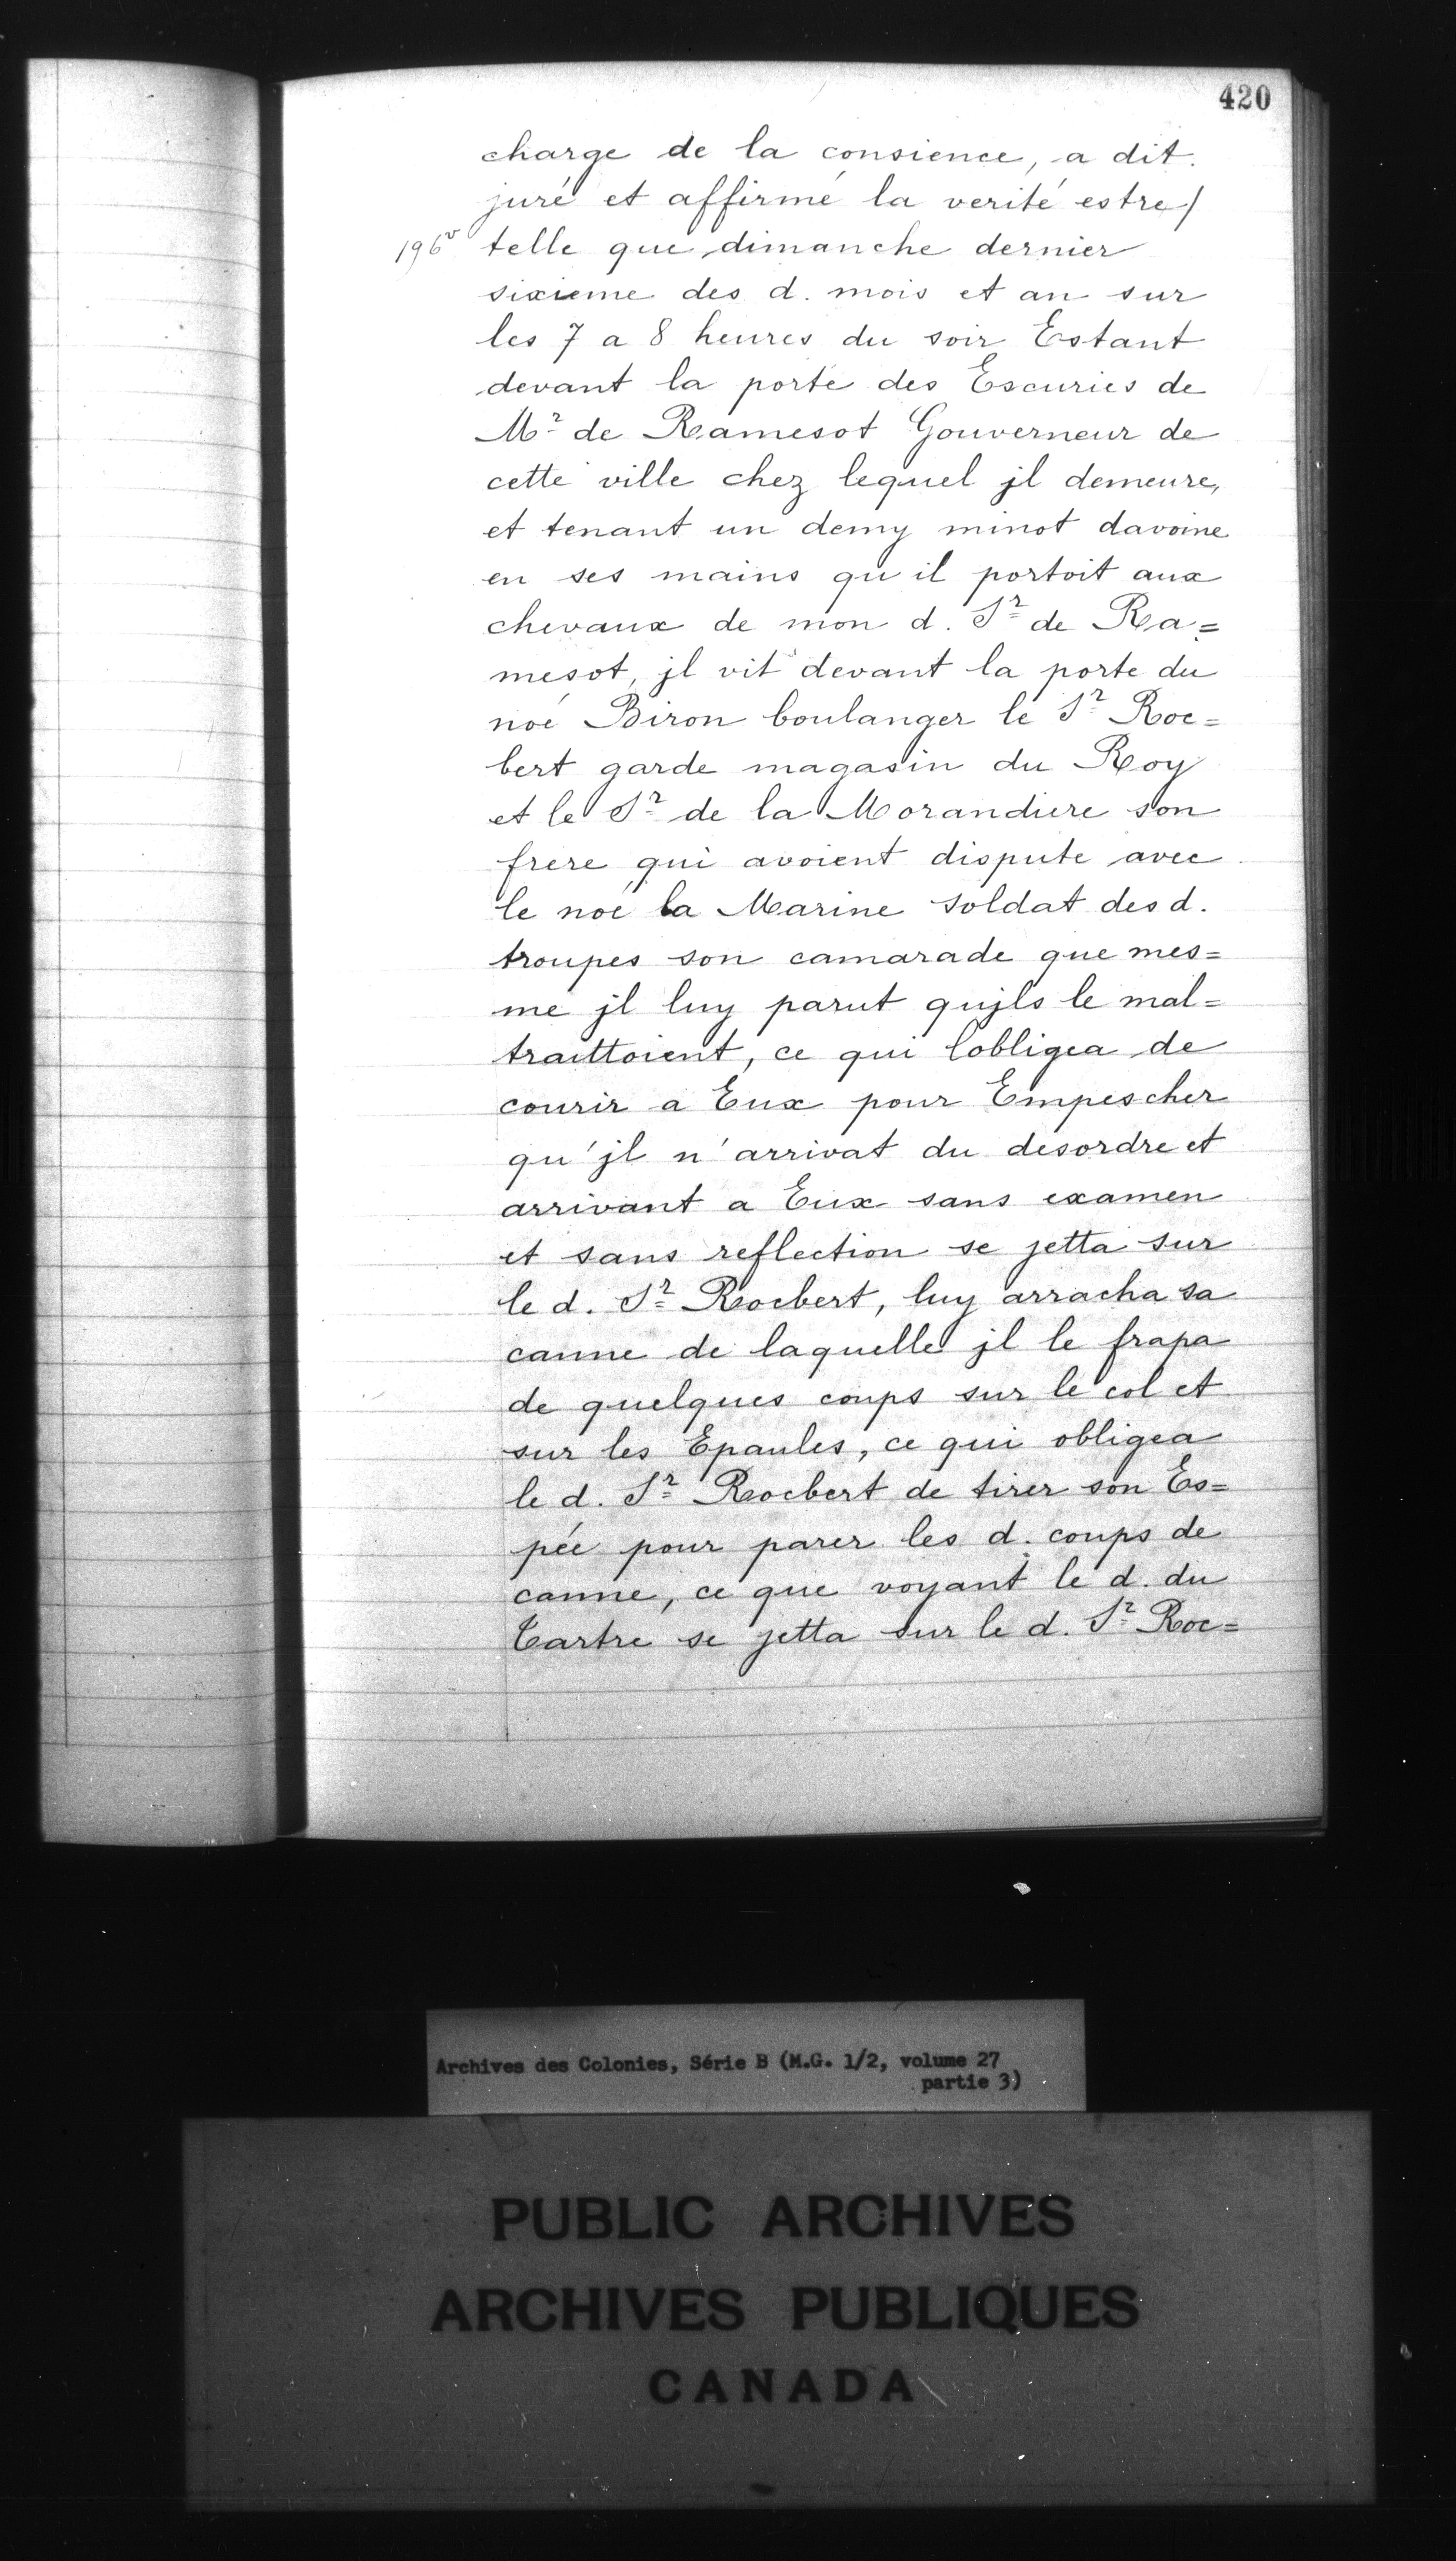 420
charge de la consience, a dit.
juré et affirmé la verité estre/
196v telle que dimanche dernier
sixieme des d. mois et an sur
les 7 a 8 heures du soir Estant
devant la porte des Escuries de
Mr de Ramesot Gouverneur de
cette ville chez lequel jl demeure,
et tenant un demy minot davoine
en ses mains qu il portoit aux
chevaux de mon d. Sr de Ra=
mesot, jl vit devant la porte du
noé Biron boulanger le Sr Roc=
bert garde magasin du Roy
et le Sr de la Morandiere son
frere qui avoient dispute avec
le noé la Marine soldat des d.
troupes son camarade que mes=
me jl luy parut qujls le mal=
traittoient, ce qui lobligea de
courir a Eux pour Empescher
qu'jl n'arrivat du desordre et
arrivant a Eux sans examen
et sans reflection se jetta sur
le d. Sr Rocbert, luy arracha sa
canne de laquelle jl le frapa
de quelques coups sur le col et
sur les Epaules, ce qui obligea
le d. Sr Rocbert de tirer son Es=
pée pour parer les d. coups de
canne, ce que voyant le d. du
Tartre se jetta sur le d. Sr Roc=
Archives des Colonies, Série B (M.G. 1/2, volume 27
partie 3)
PUBLIC ARCHIVES
ARCHIVES PUBLIQUES
CANADA